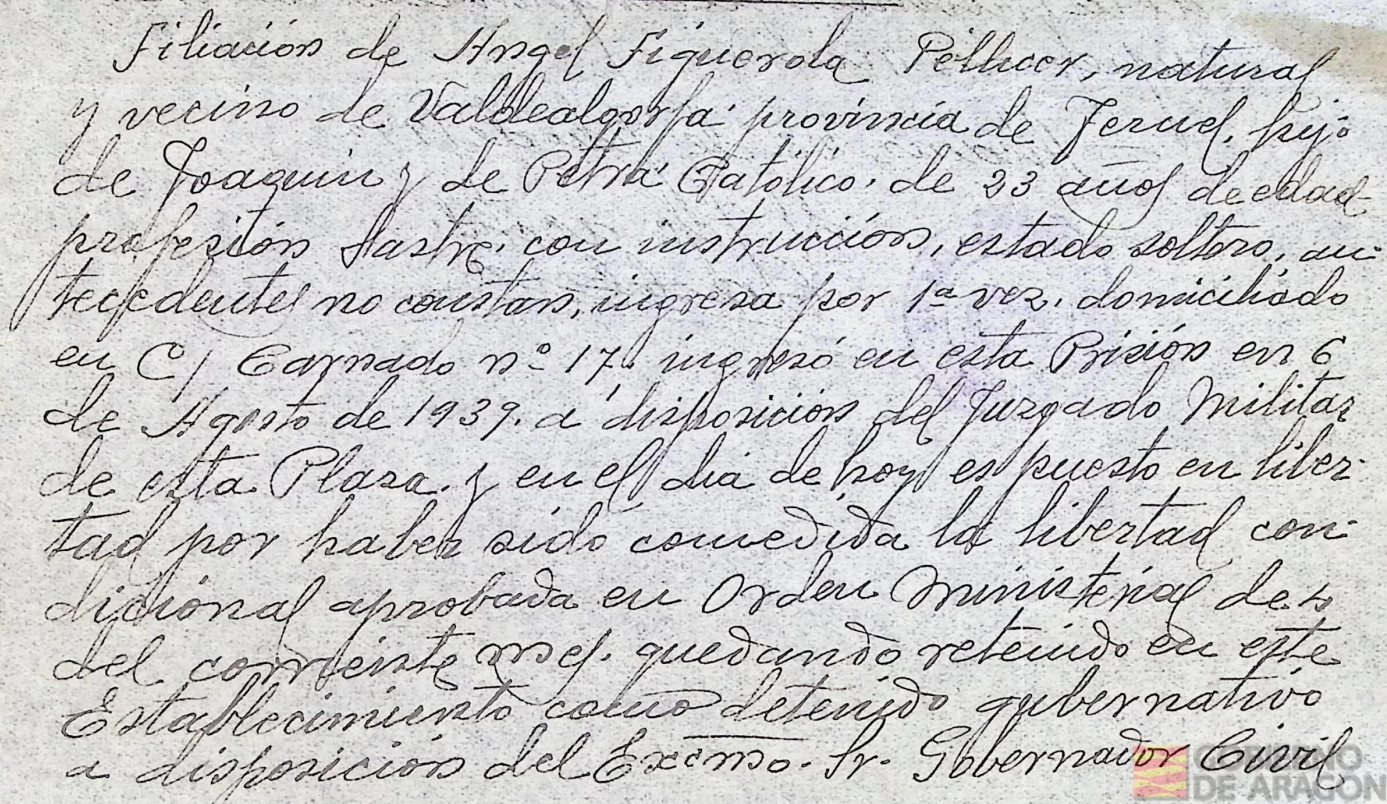 Filiación de Angel Figuerola Pellicer, natural
y vecino de Valdealgorfa provincia de Teruel, hijo
de Joaquin y de Petra Católico. de 23 años de edad
profesión Sastre. con instrucción, estado soltero, an-
tecedentes no constan, ingresa por 1ª vez. domiciliado
en C/ nº 17. ingresó en esta Prisión en 6
de Agosto de 1939. a disposición del Juzgado Militar
de esta Plaza. y en el dia de hoy es puesto en liber-
tad por haber sido concedida la libertad con-
dicional aprobada en Orden Ministerial de 4
del corriente mes. quedando retenido en este
Establecimiento como detenido gubernativo
a disposición del Excmo. Sr. Gobernador Civil
GOBIERNO
DE ARAGON